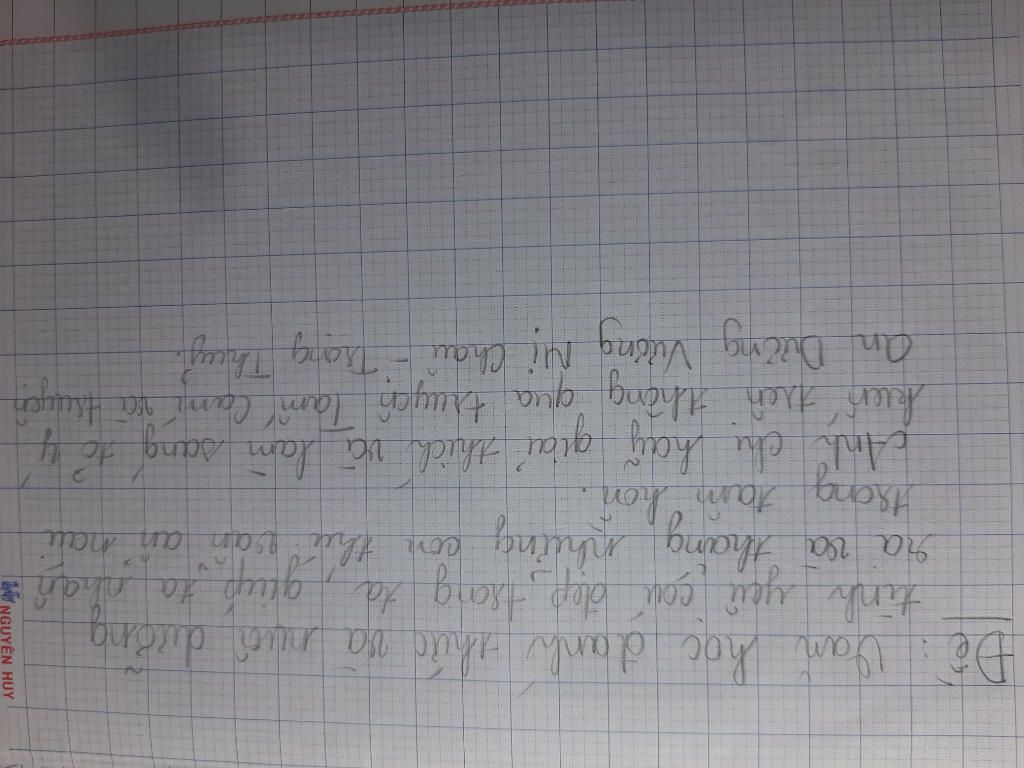 Đề: Văn học đánh thức và nuôi dưỡng
tình yêu cái đẹp trong ta, giúp ta nhận
ra và thắng những con thú vẫn ẩn náu
trong tâm hồn.
Anh chị hãy giải thích và làm sáng tỏ ý
kiến trên thông qua truyện Tấm Cám và truyện
An Dương Vương Mị Châu - Trọng Thủy.
NGUYÊN HUY